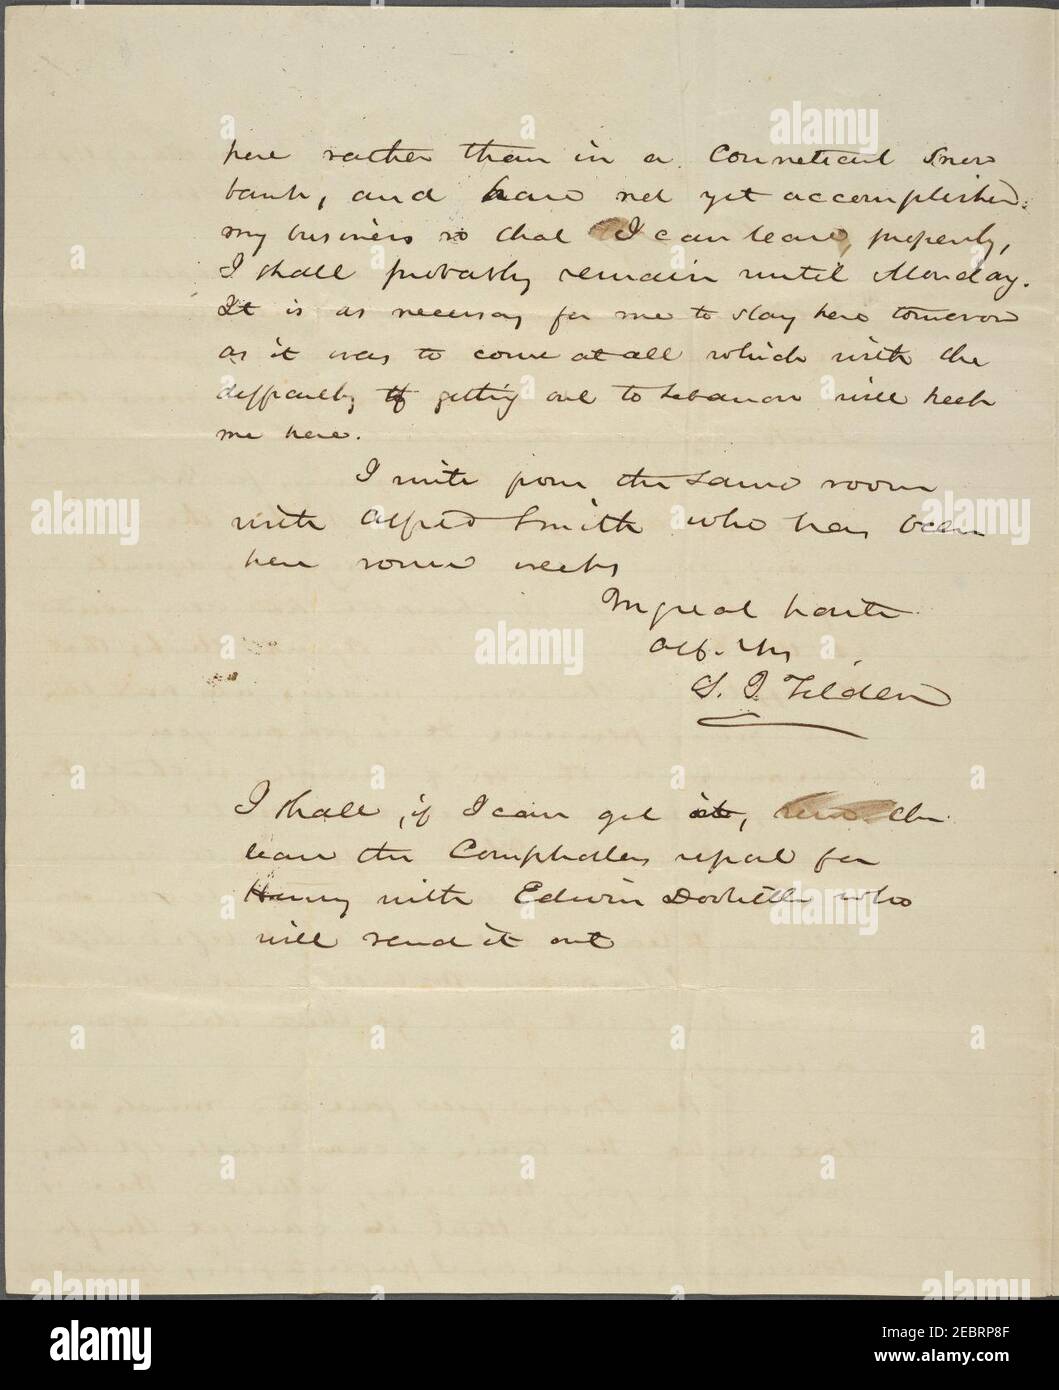 here rather than in a Conneticut Snow
bank, and have not yet accomplished
my business so that I can leave, properly,
I shall probably remain until Monday.
It is as necessary for me to stay here tomorrow
as it was to come at all which with the
difficulty of getting out to Lebanon will keep
me here.
I write from the same room
with Alfred Smith who has been
here some weeks
In great haste
Aff. Yrs
S. J. Tilden
I shall, if I can get it,
leave the Comptrollers report for
Henry with Edwin who
will send it out
alamy
Image ID: 2EBRP8F
www.alamy.com